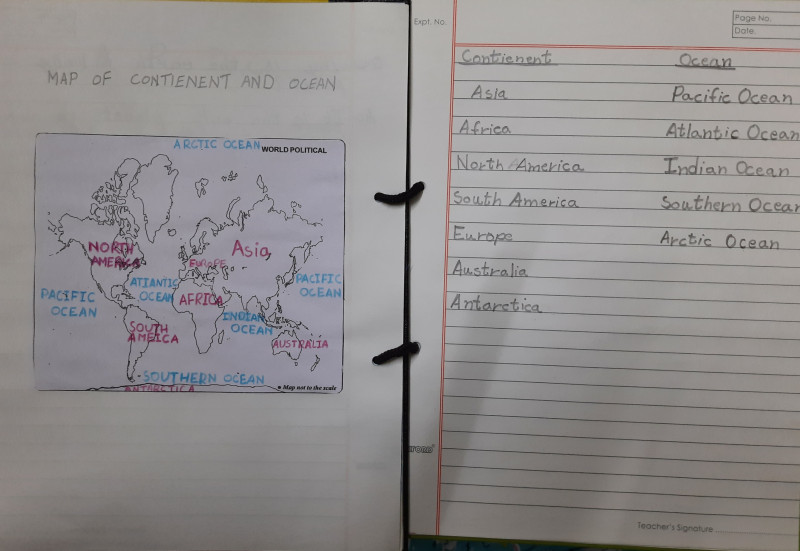 MAP OF CONTIENENT AND OCEAN
ARCTIC OCEAN
WORLD POLITICAL
NORTH
AMERICA
EUROPE
Asia
ATIANTIC
OCEAN
PACIFIC
OCEAN
PACIFIC
OCEAN
AFRICA
INDIAN
OCEAN
SOUTH
AMEICA
AUSTRALIA
SOUTHERN OCEAN
ANTARCTICA
★ Map not to the scale
Expt. No.
Page No.
Date.
Contienent Ocean
Asia Pacific Ocean
Africa Atlantic Ocean
North America Indian Ocean
South America Southern Ocean
Europe Arctic Ocean
Australia
Antarctica
Teacher's Signature